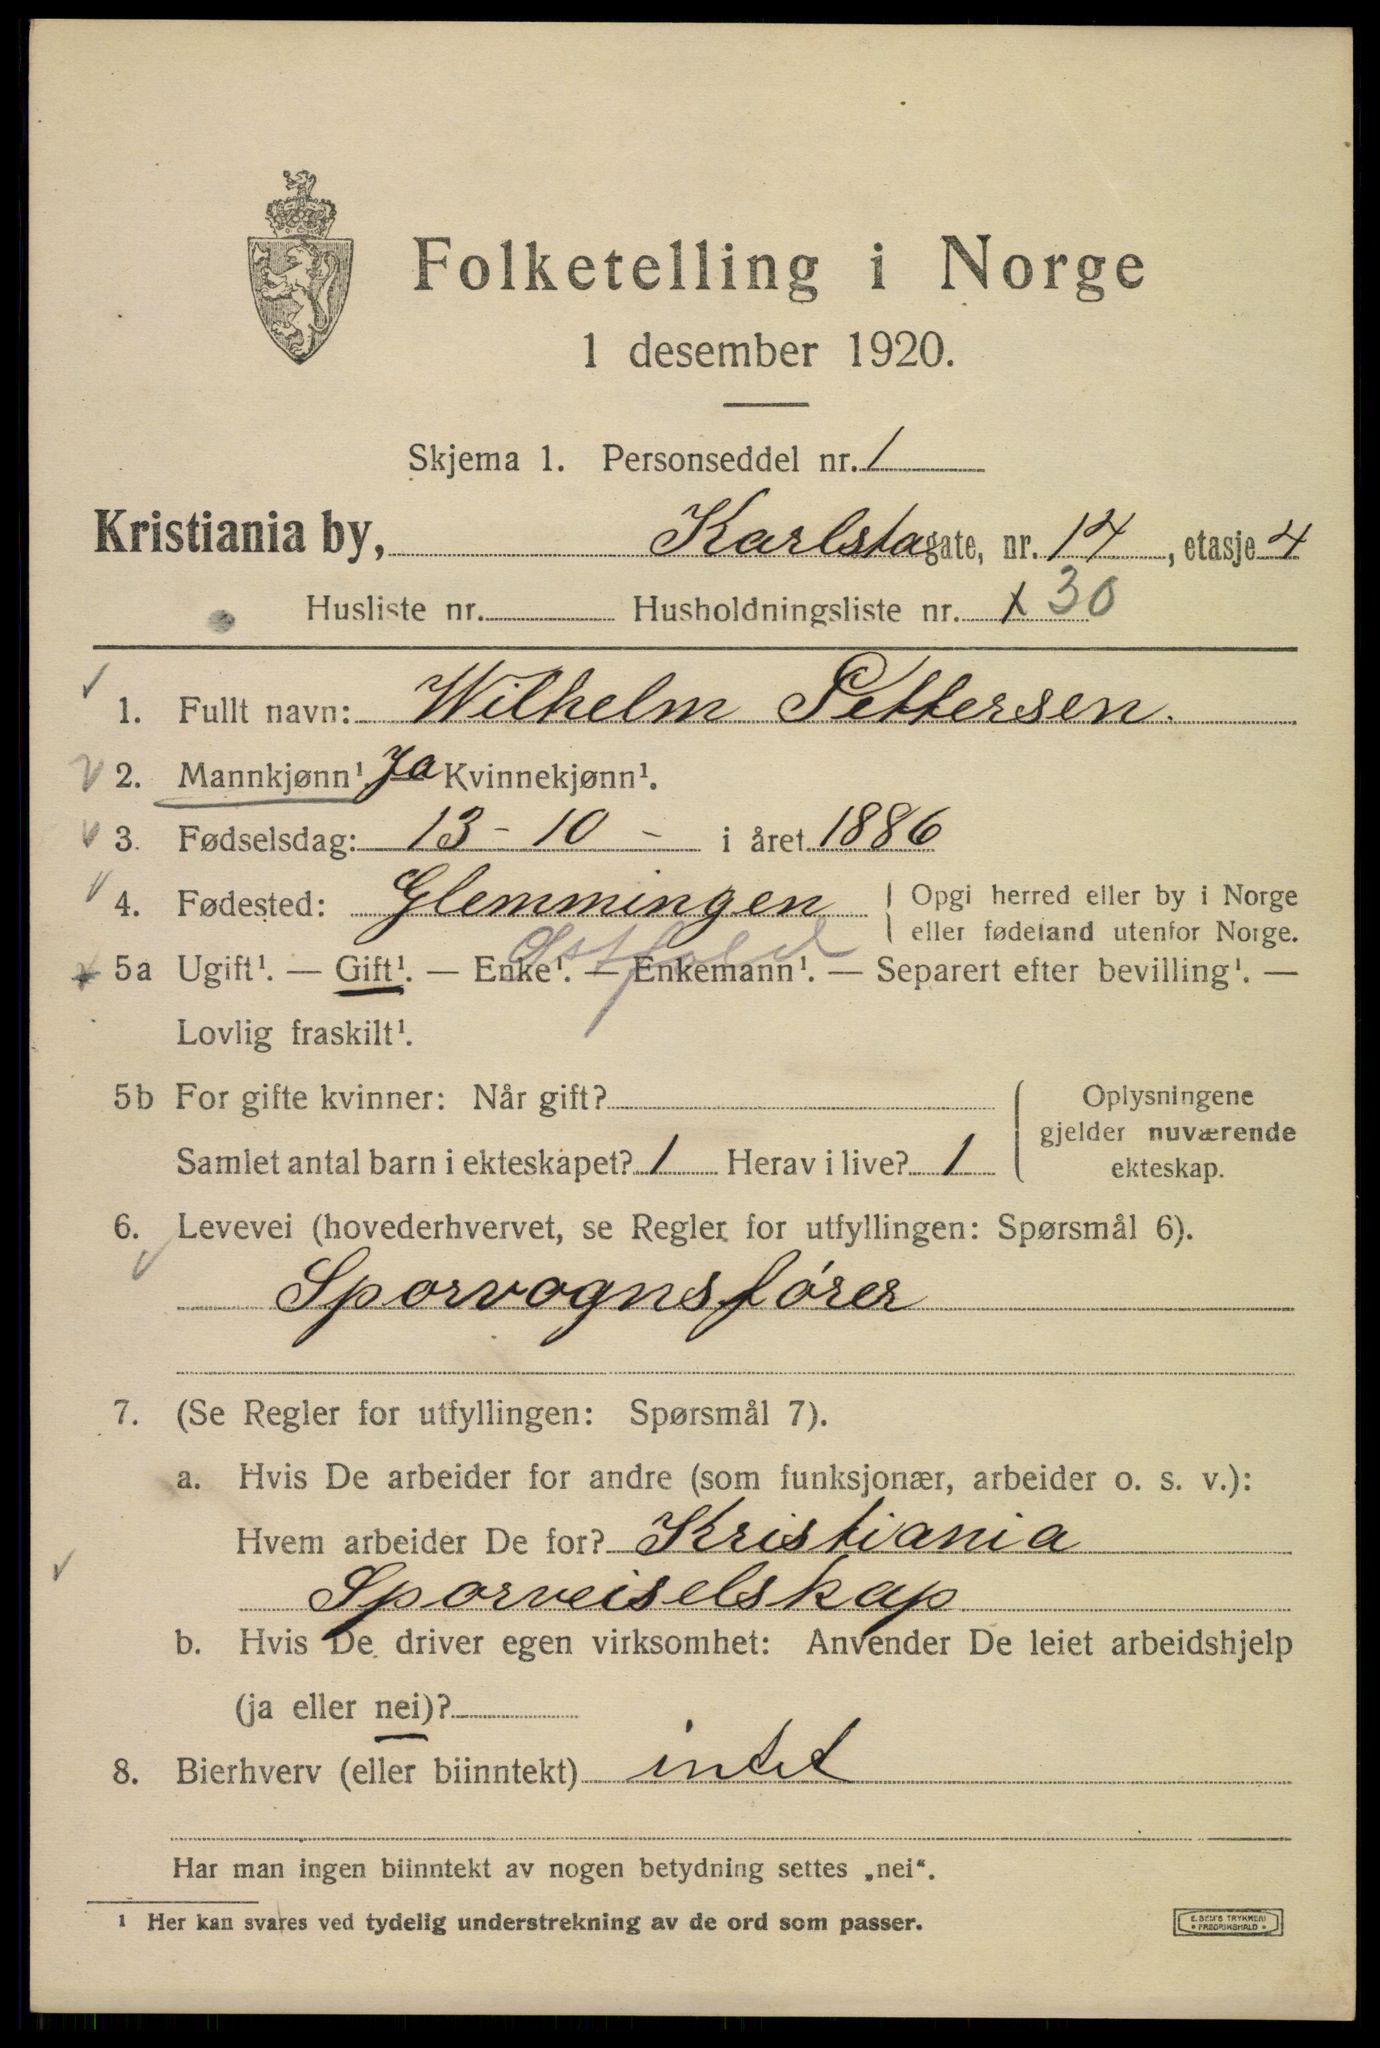 Folketelling i Norge
1 desember 1920.
Skjema 1. Personseddel nr. 1
Kristiania by, Karlstagate, nr. 14, etasje 4
Husliste nr. Husholdningsliste nr. x 30
1. Fullt navn: Wilhelm Pettersen.
2. Mannkjønn¹. Ja Kvinnekjønn¹.
3. Fødselsdag: 13 - 10 - i året 1886
4. Fødested: Glemmingen Opgi herred eller by i Norge
eller fødeland utenfor Norge.
Østfold
5a Ugift¹. — Gift¹. — Enke¹. — Enkemann¹. — Separert efter bevilling¹. —
Lovlig fraskilt¹.
5b For gifte kvinner: Når gift? Oplysningene
gjelder nuværende
Samlet antal barn i ekteskapet? 1 Herav i live? 1 ekteskap.
6. Levevei (hovederhvervet, se Regler for utfyllingen: Spørsmål 6).
Sporvognsfører
7. (Se Regler for utfyllingen: Spørsmål 7).
a. Hvis De arbeider for andre (som funksjonær, arbeider o. s. v.):
Hvem arbeider De for? Kristiania
Sporveiselskap
b. Hvis De driver egen virksomhet: Anvender De leiet arbeidshjelp
(ja eller nei)?
8. Bierhverv (eller biinntekt) intet
Har man ingen biinntekt av nogen betydning settes „nei“.
¹ Her kan svares ved tydelig understrekning av de ord som passer.
E. SEM'S TRYKKERI
FREDRIKSHALD